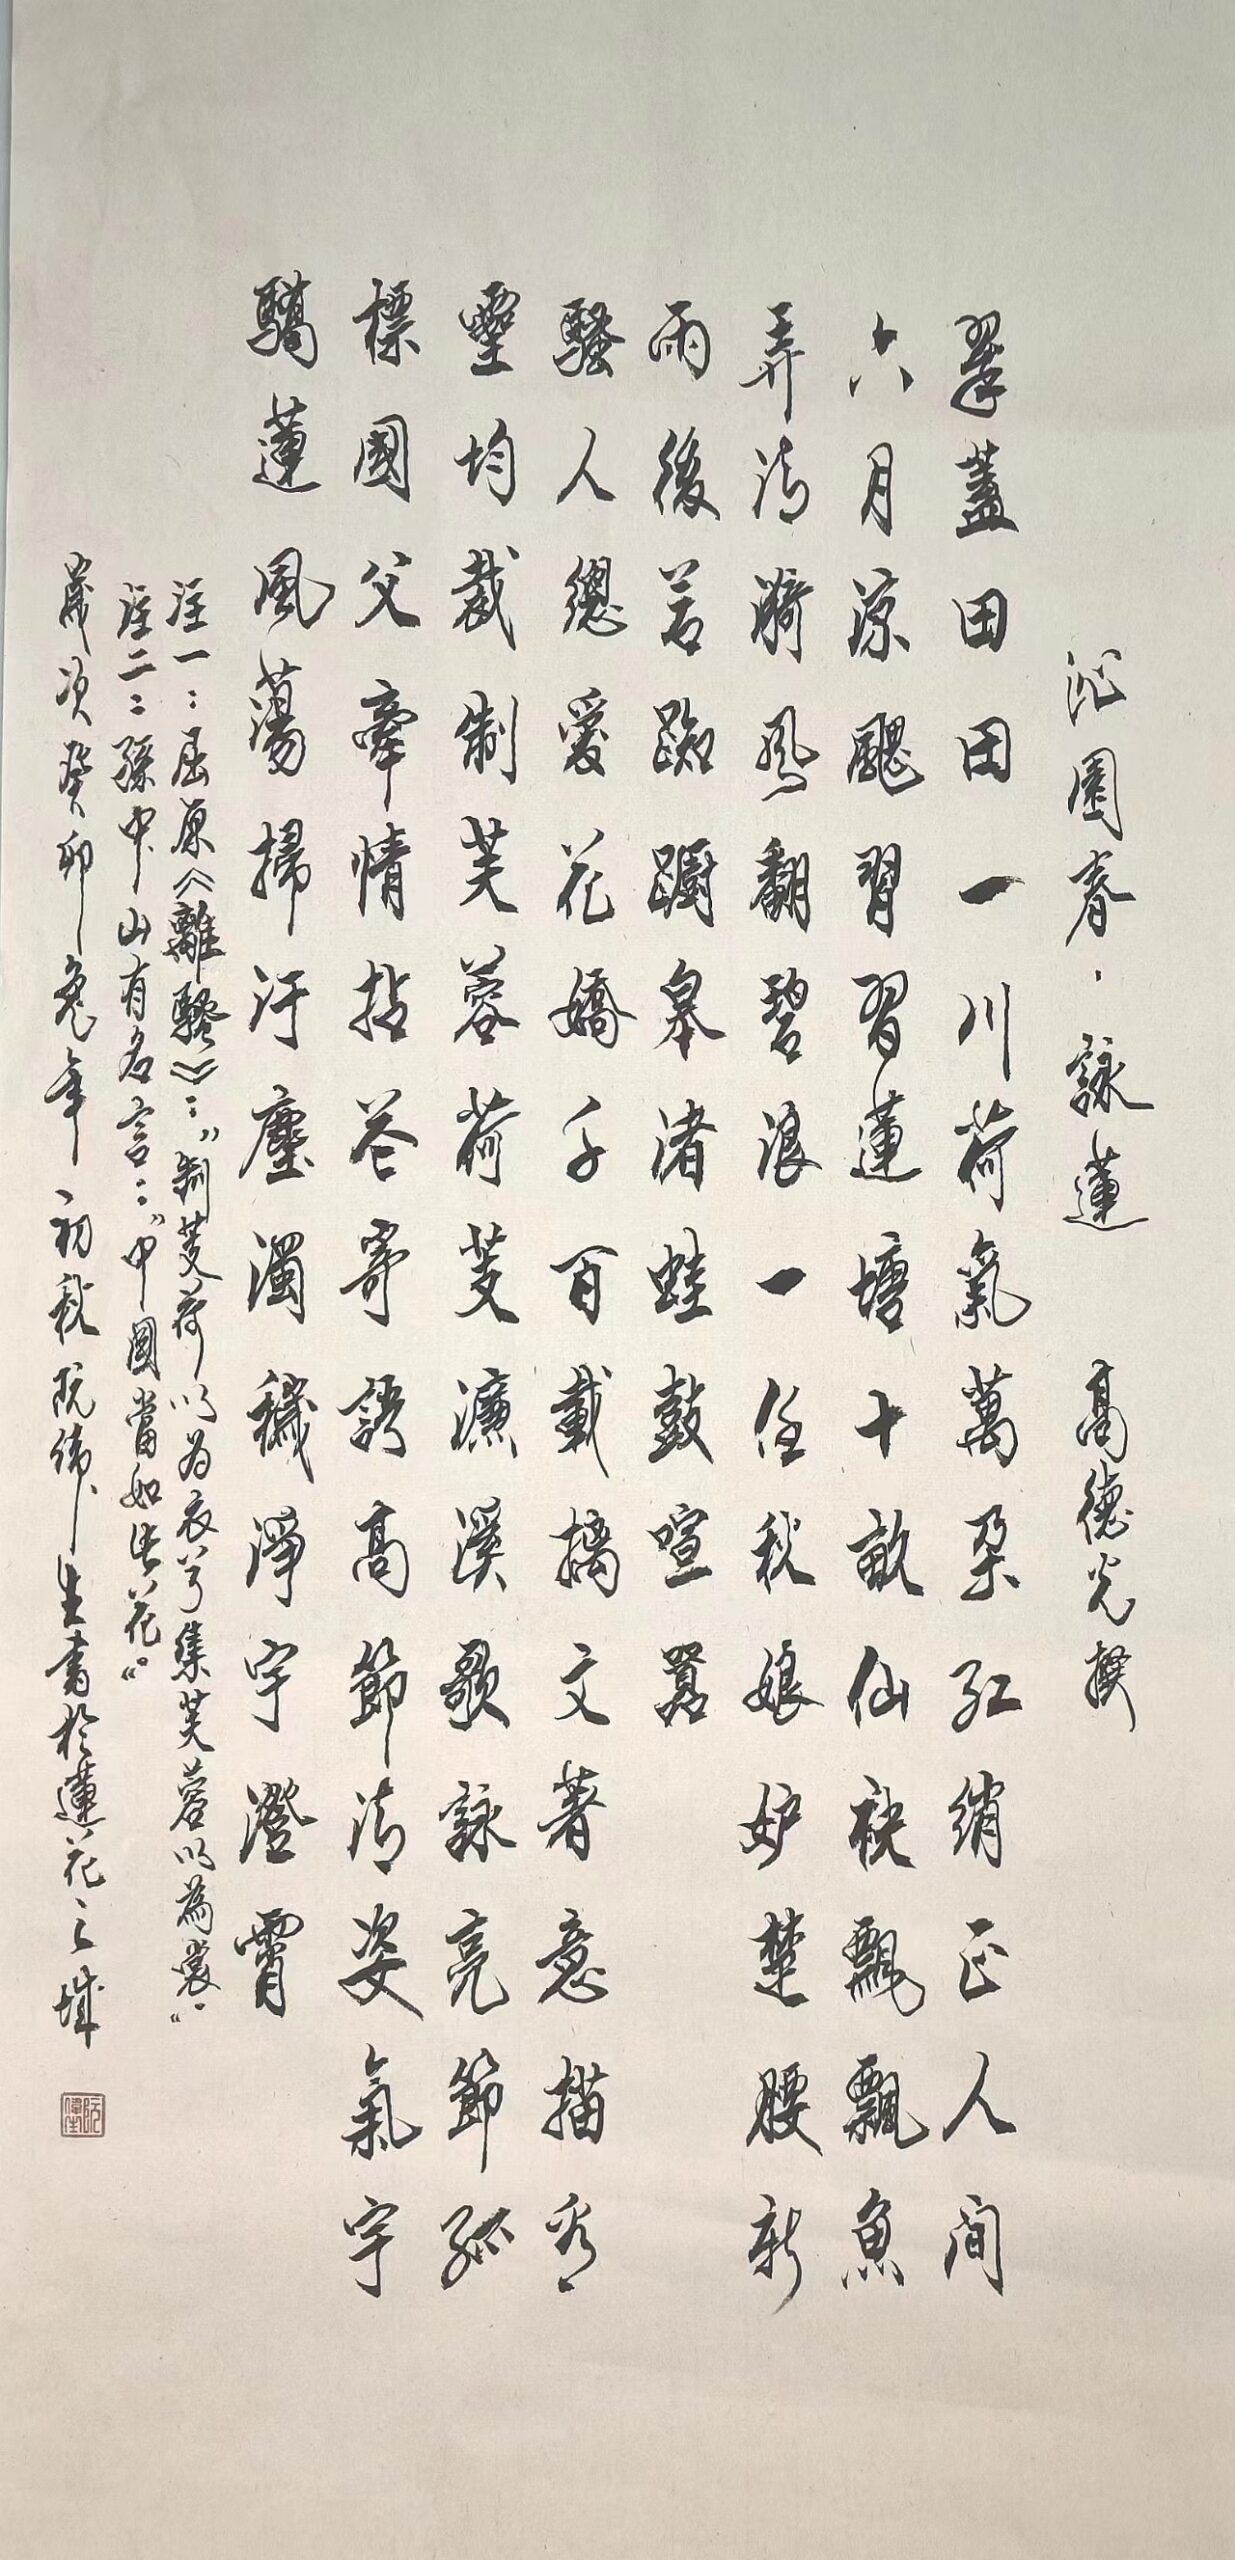 沁園春·詠蓮 高德光撰
翠蓋田田一川荷氣萬朵紅綃正人間
六月涼颸習習蓮塘十畝仙袂飄飄魚
弄清漪風翻碧浪一任秋娘妒楚腰新
雨後若踟躕皋渚蛙鼓喧囂
騷人總愛花嬌千百載摛文著意描看
靈均裁制芙蓉荷芰濂溪歌詠亮節孤
標國父牽情拈花寄語高節清姿氣宇
驕蓮風蕩掃汙塵濁穢淨宇澄霄
注一：屈原《離騷》："制芰荷以為衣兮集芙蓉以為裳"
注二：孫中山有名言："中國當如此花"。
歲次癸卯兔年初秋阮偉生書於蓮花之城
阮偉生